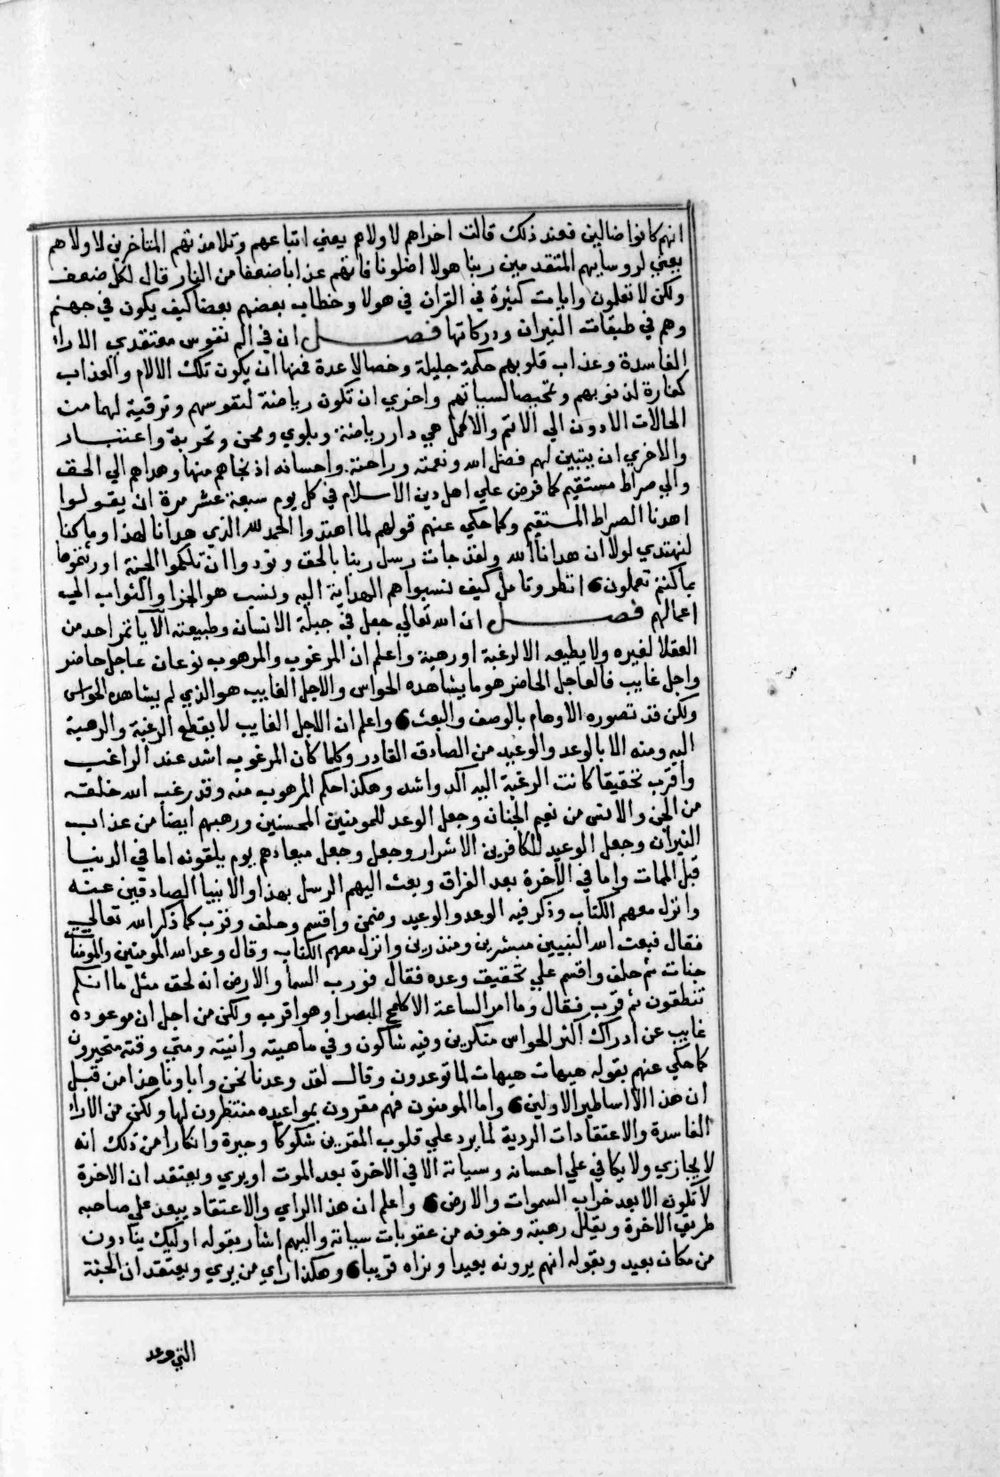 انهم كانوا ضالين فعند ذلك قالت اخراهم لاولاهم يعني اتباعهم وتلامذتهم المتاخرين لاولاهم
يعني لروسايهم المتقدمين ربنا هولا اضلونا فاتهم عذابا ضعفا من النار قال لكل ضعف
ولكن لا تعلمون وايات كثيرة في القران في هولا وخطاب بعضهم بعضا كيف يكون في جهنم
وهم في طبقات النيران ودركاتها فصل ان في الم نفوس معتقدي الارا
الفاسدة وعذاب قلوبهم حكمة جليلة وخصالا عدة فمنها ان يكون تلك الالام والعذاب
كفارة لذنوبهم وتمحيصا لسياتهم واخري ان تكون رياضة لنفوسهم وترقية لها من
الحالات الادون الي الاتم والاكمل هي دار رياضة وبلوي ومحن وتجربة واعتبار
والاخري ان يتبين لهم فضل الله ونعمته وراحته واحسانه اذ نجاهم منها وهداهم الي الحق
والي صراط مستقيم كما فرض علي اهل دين الاسلام في كل يوم سبعة عشر مرة ان يقولوا
اهدنا الصراط المستقيم وكما حكي عنهم قولهم لما اهتدوا الحمد لله الذي هدانا لهذا وما كنا
لنهتدي لولا ان هدانا الله ولقد جات رسل ربنا بالحق ونودوا ان تلكموا الجنة اورثتموها
بما كنتم تعملون 6 انظر وتامل كيف نسبوا هم الهداية اليه ونسب هو الجزا والثواب الي
اعمالهم فصل ان الله تعالي جعل في جبلة الانسان وطبيعته الا ياتمر احد من
العقلا لغيره ولا يطيعه الا لرغبة او رهبة واعلم ان المرغوب والمرهوب نوعان عاجل حاضر
واجل غايب فالعاجل الحاضر هو ما يشاهده الحواس والاجل الغايب هو الذي لم يشاهده الحواس
ولكن قد تصوره الاوهام بالوصف والبعث 6 واعلم ان الاجل الغايب لا يقطع الرغبة والرهبة
اليه ومنه الا بالوعد والوعيد من الصادق القادر وكلما كان المرغوب اشد عند الراغب
واقرب تحقيقا كانت الرغبة اليه اكد واشد وهكذا حكم المرهوب منه وقد رغب الله خلقه
من الجن والانس من نعيم الجنان وجعل الوعد للمومنين المحسنين ورهبهم ايضا من عذاب
النيران وجعل الوعيد للكافرين الاشرار وجعل وجعل ميعادهم يوم يلقونه اما في الدنيا
قبل الممات واما في الاخرة بعد الفراق وبعث اليهم الرسل بهذا والانبيا الصادقين عنه
وانزل معهم الكتاب وذكر فيه الوعد والوعيد وضمن واقسم وحلف وقرب كما ذكر الله تعالي
فقال فبعث الله النبيين مبشرين ومنذرين وانزل معهم الكتاب وقال وعد الله المومنين والمومنات
جنات ثم حلف واقسم علي تحقيق وعده فقال فورب السما والارض انه لحق مثل ما انكم
تنطقون ثم قرب فقال وما امر الساعة الا كلمح البصر او هو اقرب ولكن من اجل ان موعوده
غايب عن ادراك اكثر الحواس منكرين وفيه شاكون وفي ماهيته وانيته ومتي وقته متحيرون
كما حكي عنهم بقوله هيهات هيهات لما توعدون وقال لقد وعدنا نحن واباونا هذا من قبل
ان هذا الا اساطير الاولين 6 واما المومنون فهم مقرون بمواعيده منتظرون لها ولكن من الارا
الفاسدة والاعتقادات الردية لما يرد علي قلوب المقرين شكوكا وحيرة وانكارا من ذلك انه
لا يجازي ولا يكافي علي احسانه وسياته الا في الاخرة بعد الموت او يري ويعتقد ان الاخرة
لا تكون الا بعد خراب السموات والارض 6 واعلم ان هذا الراي والاعتقاد يبعد علي صاحبه
طريق الاخرة ويقلل رهبته وخوفه من عقوبات سياته واليهم اشار بقوله اوليك ينادون
من مكان بعيد وبقوله انهم يرونه بعيدا ونراه قريبا 6 وهكذا راي من يري ويعتقد ان الجنة
التي وعد